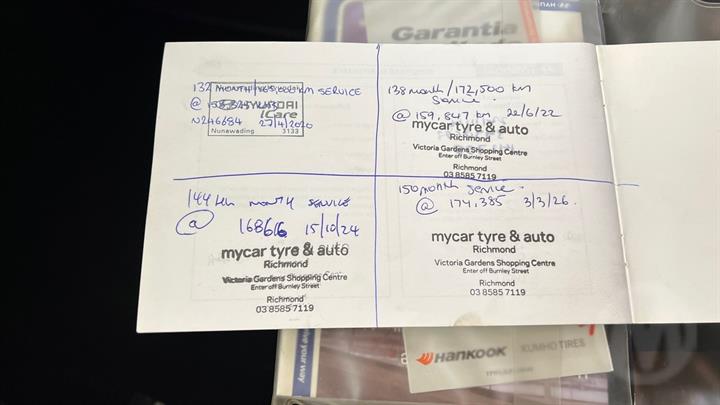 HYUN
Garantia
132 MONTH/165,000 KM SERVICE
@
HYUNDAI
iCare
N246684 27/4/2020
Nunawading 3133
138 month/172,500 km
Service.
@ 159,847 km 22/6/22
mycar tyre & auto
Richmond
Victoria Gardens Shopping Centre
Enter off Burnley Street
Richmond
03 8585 7119
144 month SERVICE
@ 168616 15/10/24
mycar tyre & auto
Richmond
Victoria Gardens Shopping Centre
Enter off Burnley Street
Richmond
03 8585 7119
150 month service.
@ 174,385 3/3/26.
mycar tyre & auto
Richmond
Victoria Gardens Shopping Centre
Enter off Burnley Street
Richmond
03 8585 7119
e your way
HANKOOK KUMHO TIRES